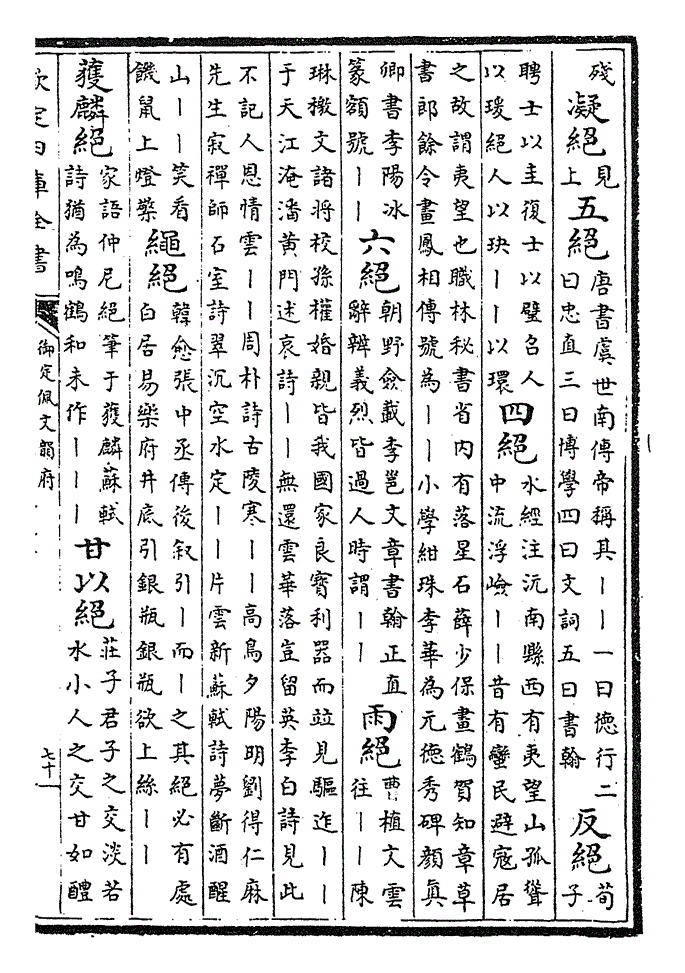 殘凝絕見上五絕唐書虞世南傳帝稱其丨丨一曰德行二曰忠直三曰博學四曰文詞五曰書翰反絕荀子
聘士以圭復士以璧召人以瑗絕人以玦丨丨以環四絕水經注沅南縣西有夷望山孤聳中流浮嶮丨丨昔有蠻民避寇居
之故謂夷望也職林秘書省内有落星石薛少保畫鶴賀知章草書郎餘令畫鳳相傳號為丨丨小學紺珠李華為元德秀碑顔真
卿書李陽冰篆額號丨丨六絕朝野僉載李邕文章書翰正直辭辨義烈皆過人時謂丨丨雨絕曹植文雲往丨丨陳
琳檄文諸將校孫權婚親皆我國家良寶利器而竝見驅迮丨丨于天江淹潘黄門述哀詩丨丨無還雲華落豈留英李白詩見此
不記人恩情雲丨丨周朴詩古陵寒丨丨高鳥夕陽明劉得仁麻先生寂禪師石室詩翠沉空水定丨丨片雲新蘇軾詩夢斷酒醒
山丨丨笑看饑鼠上燈檠繩絕韓愈張中丞傳後叙引丨而丨之其絕必有處白居易樂府井底引銀瓶銀瓶欲上絲丨丨
獲麟絕家語仲尼絕筆于獲麟蘇軾詩猶為鳴鶴和未作丨丨丨甘以絕莊子君子之交淡若水小人之交甘如醴
欽定四庫全書
御定佩文韻府
七十一